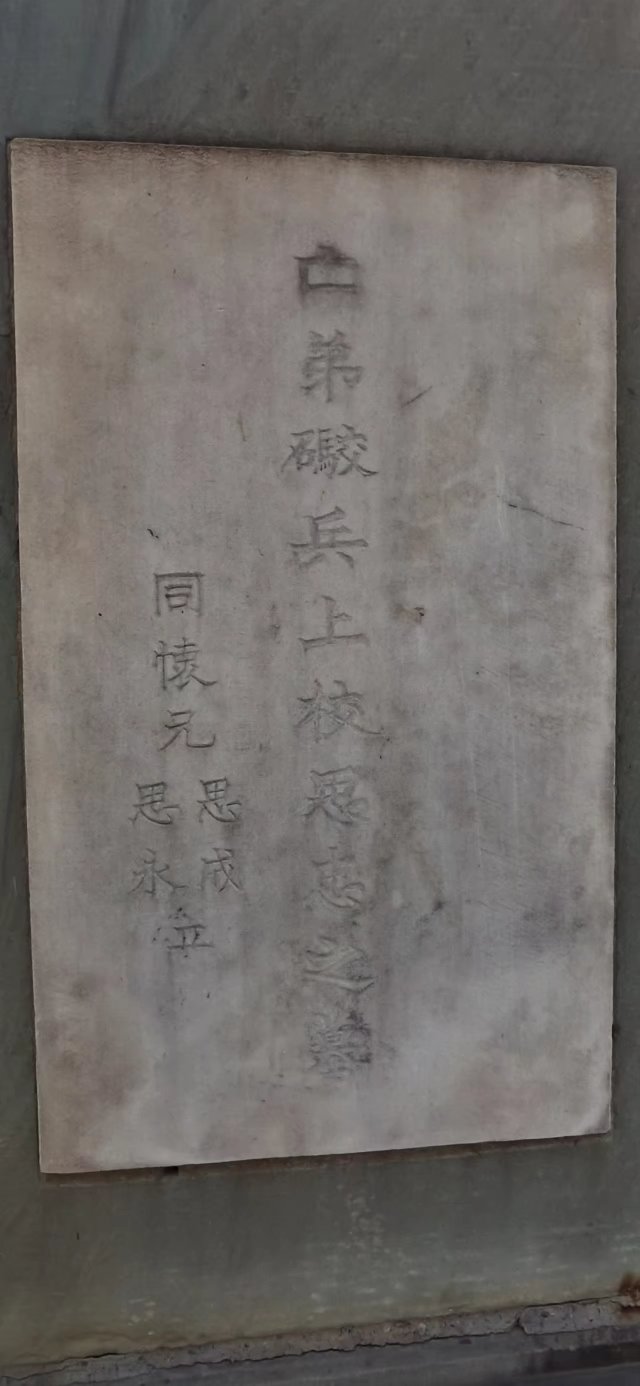 亡弟礮兵上校思忠之墓
同懷兄思成思永立